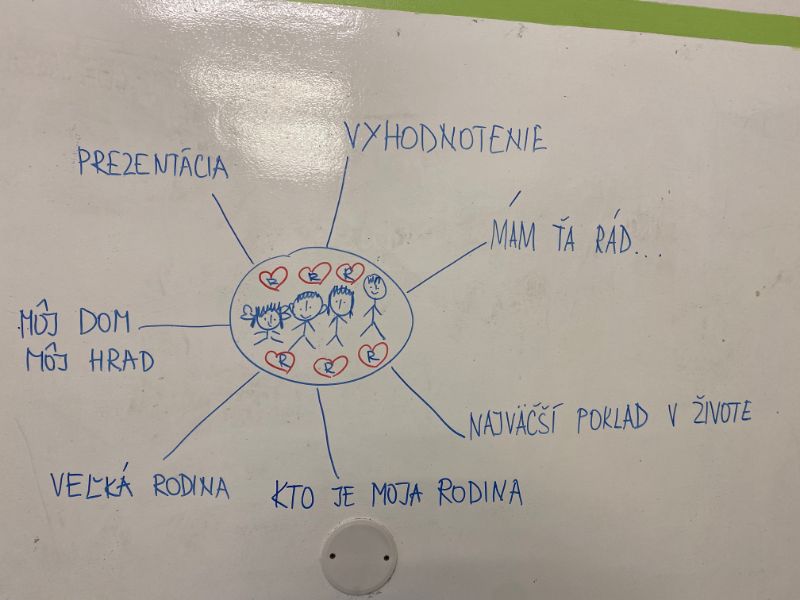 VYHODNOTENIE
PREZENTÁCIA
MÁM ŤA RÁD...
R R R
MÔJ DOM
MÔJ HRAD
R R R
NAJVÄČŠÍ POKLAD V ŽIVOTE
VEĽKÁ RODINA
KTO JE MOJA RODINA